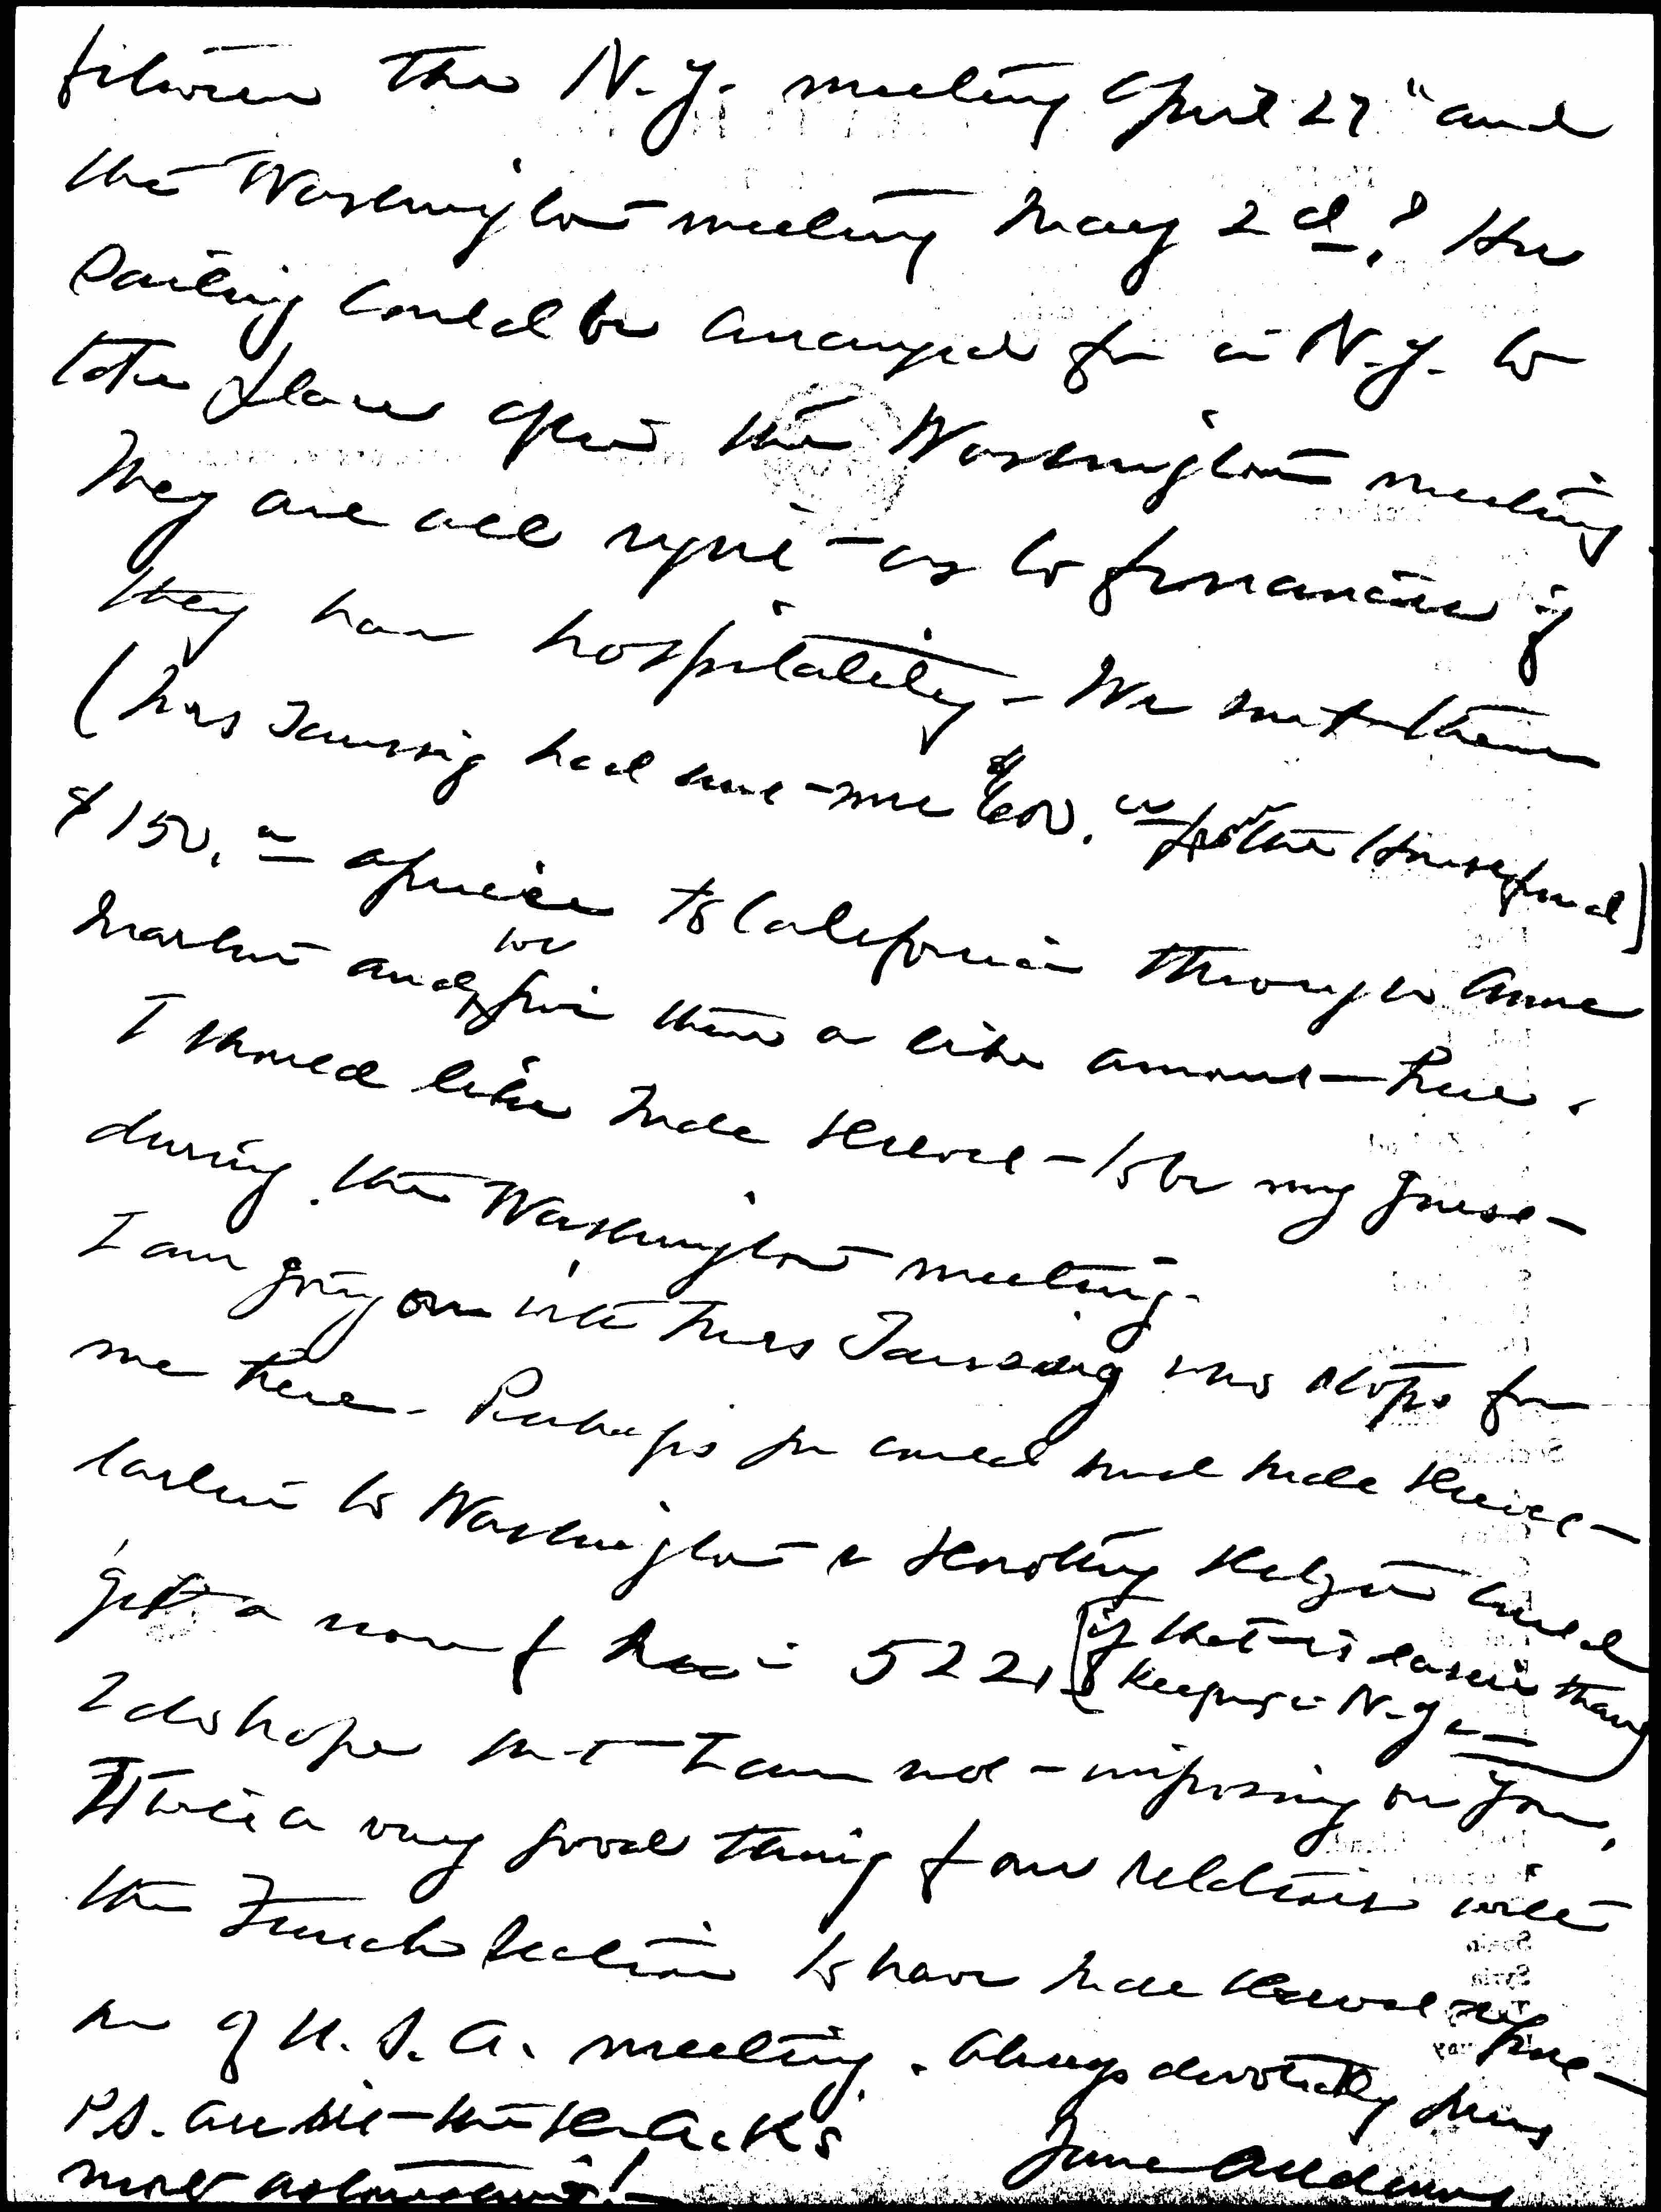 between the N.Y. meeting April 27" and
the Washington meeting May 2d? Her
Sailing could be arranged for in N.Y. to
take place after the Washington meeting.
They are all right as to finances if
they have hospitality - We sent them
(Mrs Taussig had sent me $600.00 for the House fund)
$150.00 apiece to California through Anne
Martin and we give them a like amount here.
I should like Mde to be my guest
during the Washington meeting.
I am going on with Mrs Taussig who stops for
me here. Perhaps you could send Mde
earlier to Washington & Dorothy Detzer could
get a room for her in 522, (if that is easier than
keeping in N.Y.)
I do hope that I am not imposing on you,
It will be a very good thing for our relations with
the French Section to have Mde
of U.S.A. meeting. Always devotedly yours
P.S. are the
most astonishing! Jane Addams